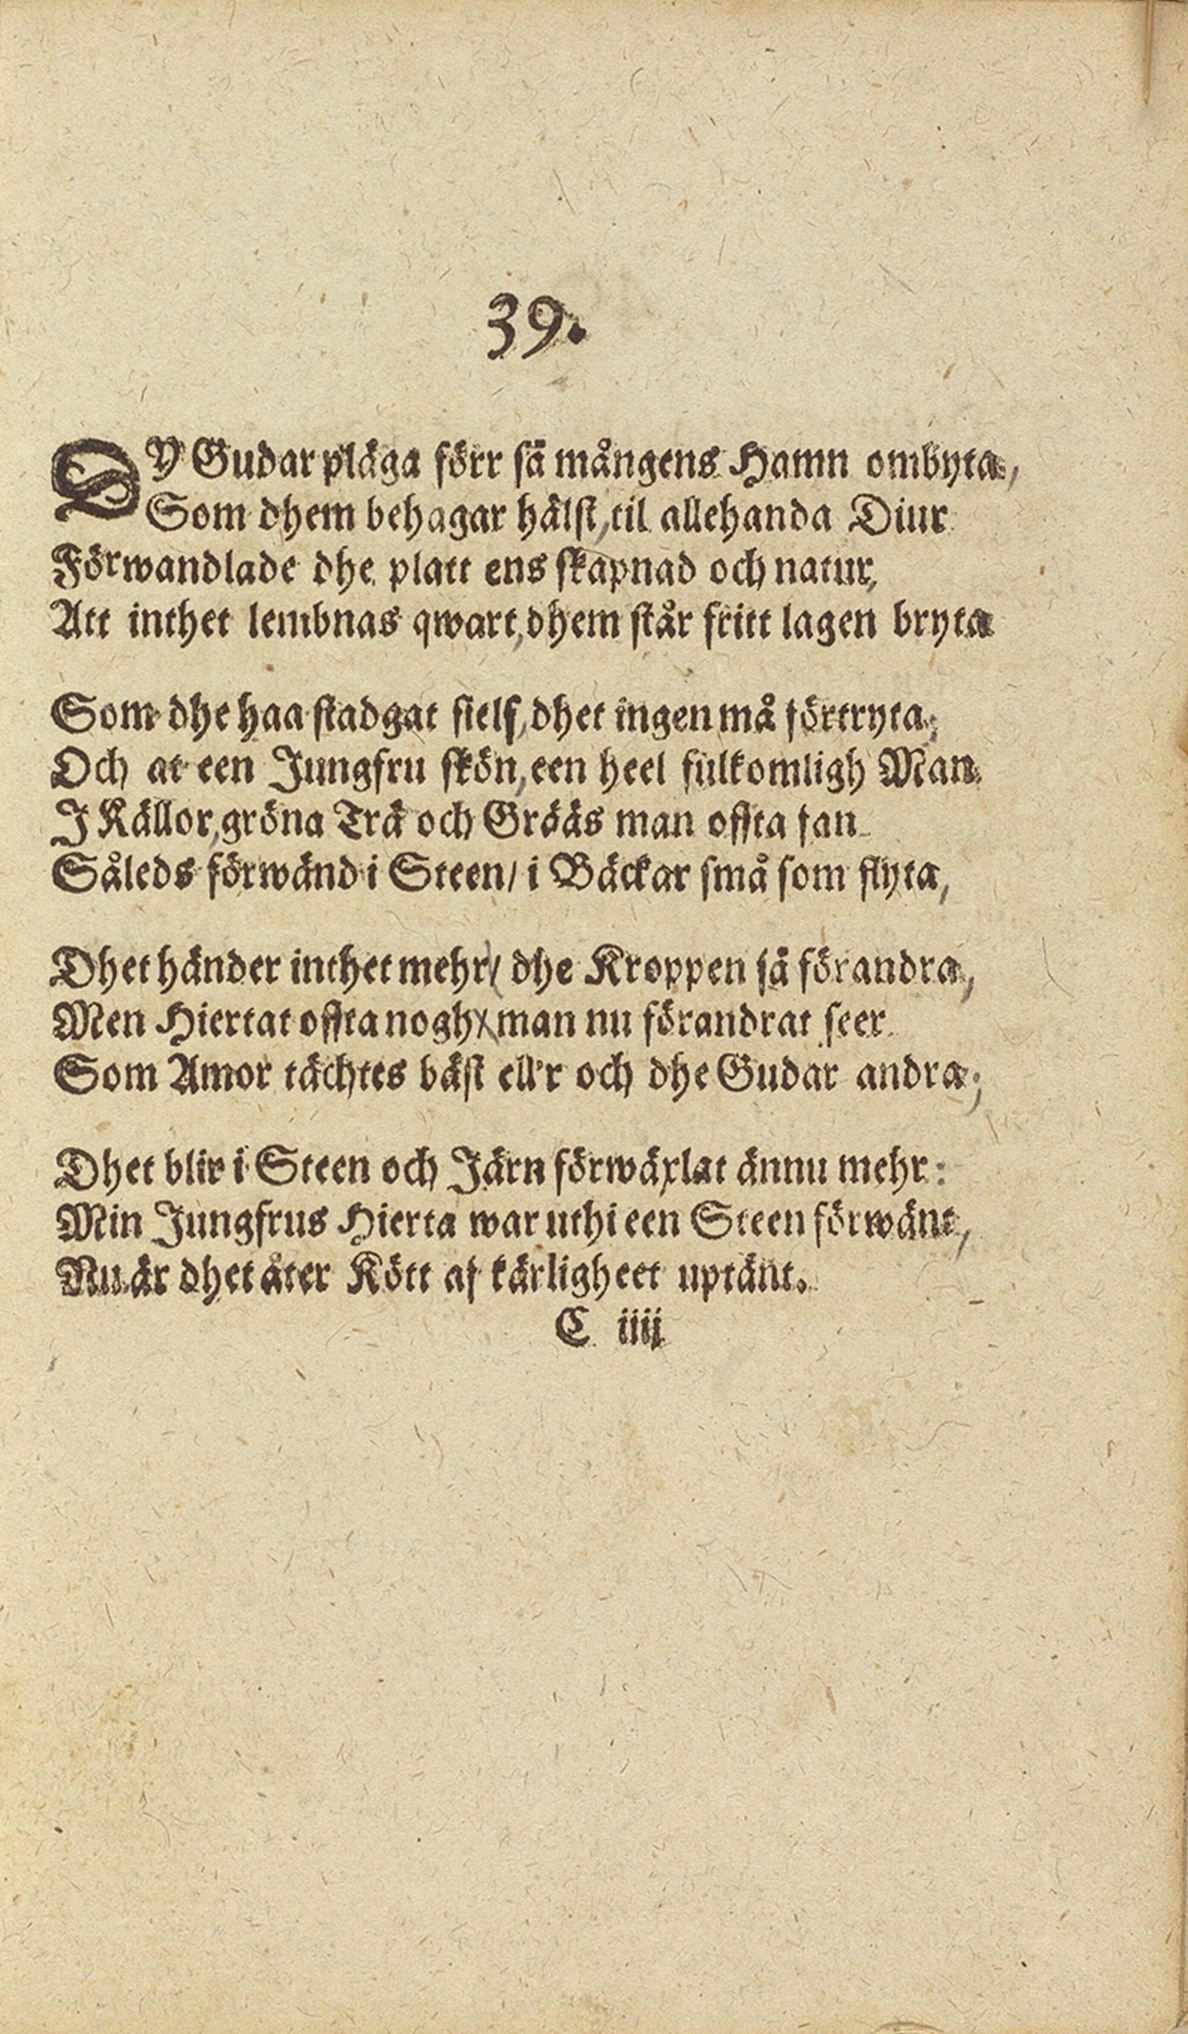 39.
DY Gudar pläga förr sä mångens Hamn ombyta,
Som dhem behagar hälst, til allehanda Diur
Förwandlade dhe platt ens skapnad och natur,
Att inthet lembnas qwart, dhem står fritt lagen bryta
Som dhe haa stadgat sielf, dhet ingen må förtryta;
Och at een Jungfru skön, een heel fulkomligh Man
J Källor, gröna Trä och Grääs man offta fan
Såleds förwänd i Steen / i Bäckar små som flyta,
Dhet händer inthet mehr / dhe Kroppen sä förandra,
Men Hiertat offta nogh / man nu förandrat seer
Som Amor tächtes bäst ell'r och dhe Gudar andra;
Dhet blir i Steen och Järn förwäxlat ännu mehr:
Min Jungfrus Hierta war uthi een Steen förwänt,
Nu är dhet åter Kött af kärligheet uptänt.
C iiij